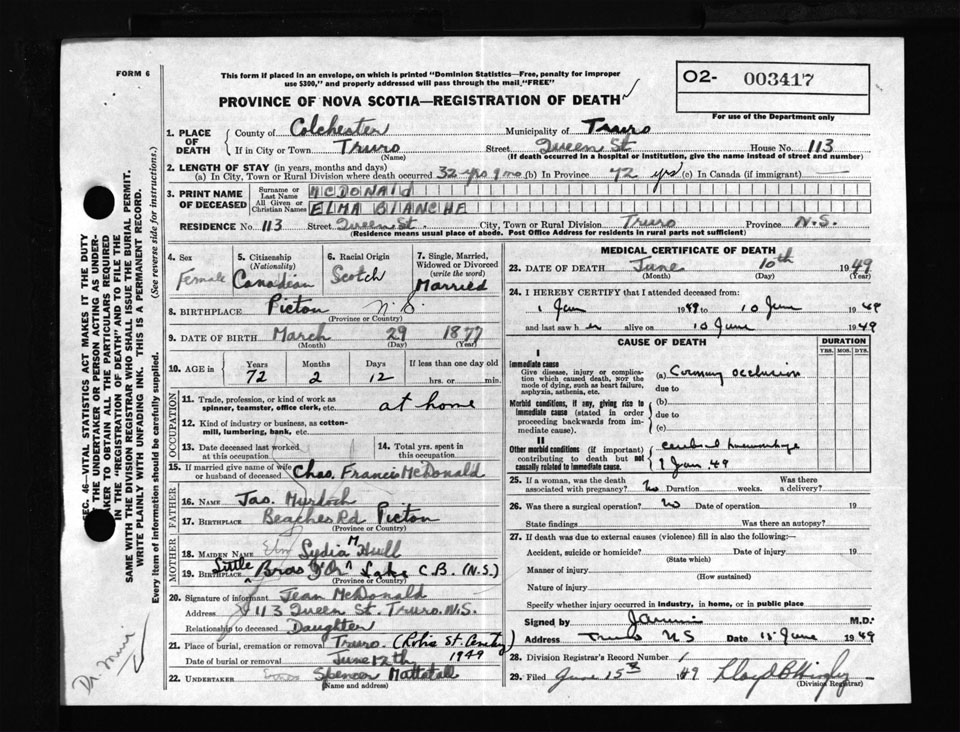 FORM 6
This form if placed in an envelope, on which is printed "Dominion Statistics—Free, penalty for improper
use $300," and properly addressed will pass through the mail "FREE"
O2- 003417
For use of the Department only
PROVINCE OF NOVA SCOTIA—REGISTRATION OF DEATH
1. PLACE OF DEATH County of Colchester Municipality of Truro
If in City or Town Truro (Name) Street Queen St House No. 113
(If death occurred in a hospital or institution, give the name instead of street and number)
2. LENGTH OF STAY (in years, months and days)
(a) In City, Town or Rural Division where death occurred 32 yrs 9 mo (b) In Province 72 yrs (c) In Canada (if immigrant) —
3. PRINT NAME OF DECEASED Surname or Last Name MCDONALD
All Given or Christian Names ELMA BLANCHE
RESIDENCE No. 113 Street Queen St. City, Town or Rural Division Truro Province N.S.
(Residence means usual place of abode. Post Office Address for residents in rural parts not sufficient)
4. Sex Female
5. Citizenship (Nationality) Canadian
6. Racial Origin Scotch
7. Single, Married, Widowed or Divorced (write the word) Married
8. BIRTHPLACE Pictou N.S.
(Province or Country)
9. DATE OF BIRTH March 29 1877
(Month) (Day) (Year)
10. AGE in Years 72 Months 2 Days 12 If less than one day old
hrs. or min.
OCCUPATION
11. Trade, profession, or kind of work as
spinner, teamster, office clerk, etc. at home
12. Kind of industry or business, as cotton-
mill, lumbering, bank, etc.
13. Date deceased last worked at this occupation
14. Total yrs. spent in this occupation
15. If married give name of wife or husband of deceased Chas. Francis McDonald
FATHER
16. NAME Jas. Murdoch
17. BIRTHPLACE Beaches Rd Pictou
(Province or Country)
MOTHER
18. MAIDEN NAME Lydia M Hull
19. BIRTHPLACE Little Bras d'Or Lake C.B. (N.S.)
(Province or Country)
20. Signature of informant Jean McDonald
Address 113 Queen St. Truro. N.S.
Relationship to deceased Daughter
21. Place of burial, cremation or removal Truro. (Robie St. Cemetery)
Date of burial or removal June 12th 1949
22. UNDERTAKER Spencer Mattatall
(Name and address)
MEDICAL CERTIFICATE OF DEATH
23. DATE OF DEATH June 10th 1949
(Month) (Day) (Year)
24. I HEREBY CERTIFY that I attended deceased from:
1 Jan 1949 to 10 June 1949
and last saw her alive on 10 June 1949
CAUSE OF DEATH
DURATION
YRS. MOS. DYS.
I
Immediate cause
Give disease, injury or complica-
tion which caused death, NOT the
mode of dying, such as heart failure,
asphyxia, asthenia, etc.
(a) Coronary occlusion
due to
Morbid conditions, if any, giving rise to
immediate cause (stated in order
proceeding backwards from im-
mediate cause).
(b)
due to
(c)
II
Other morbid conditions (if important)
contributing to death but not
causally related to immediate cause.
cerebral haemorrhage
Jan. 49
25. If a woman, was the death
associated with pregnancy? No Duration weeks. Was there a delivery?
26. Was there a surgical operation? No Date of operation 19
State findings Was there an autopsy?
27. If death was due to external causes (violence) fill in also the following:—
Accident, suicide or homicide? Date of injury 19
(State which)
Manner of injury
(How sustained)
Nature of injury
Specify whether injury occurred in industry, in home, or in public place
Signed by M.D.
Address Truro NS Date 11 June 1949
28. Division Registrar's Record Number
29. Filed June 15th 1949
(Division Registrar)
SEC. 46—VITAL STATISTICS ACT MAKES IT THE DUTY
OF THE UNDERTAKER OR PERSON ACTING AS UNDER-
TAKER TO OBTAIN ALL THE PARTICULARS REQUIRED
IN THE "REGISTRATION OF DEATH" AND TO FILE THE
SAME WITH THE DIVISION REGISTRAR WHO SHALL ISSUE THE BURIAL PERMIT.
WRITE PLAINLY WITH UNFADING INK. THIS IS A PERMANENT RECORD.
Every item of information should be carefully supplied. (See reverse side for instructions.)
Dr.